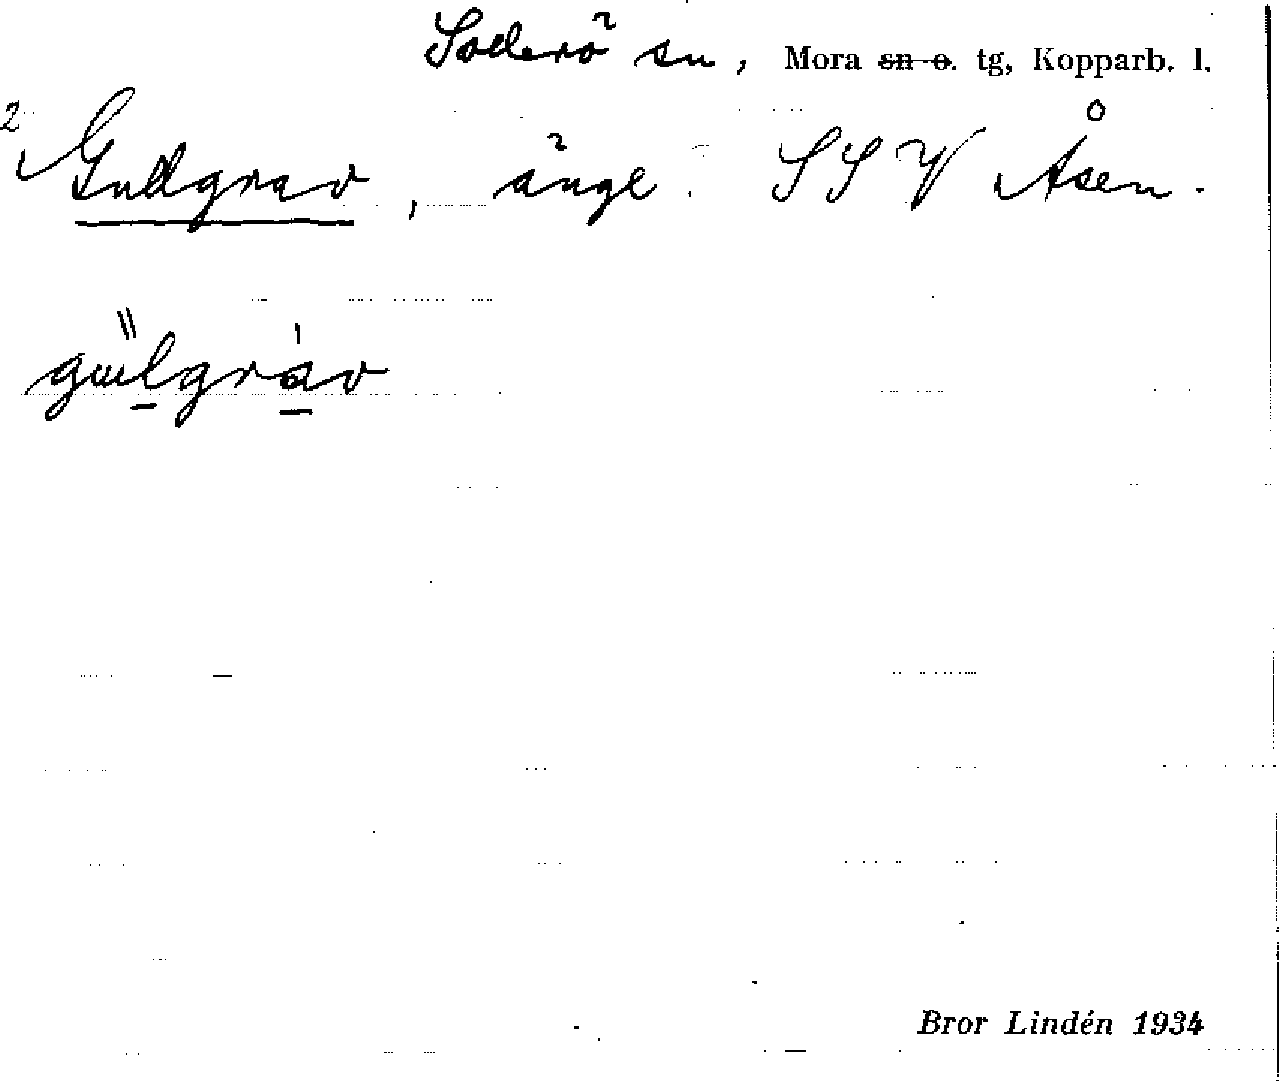 Söderö sn, Mora sn o. tg, Kopparb. l.
2 Gullgrav, änge. SSV Åsen.
gu̎lgrȧv
Bror Lindén 1934